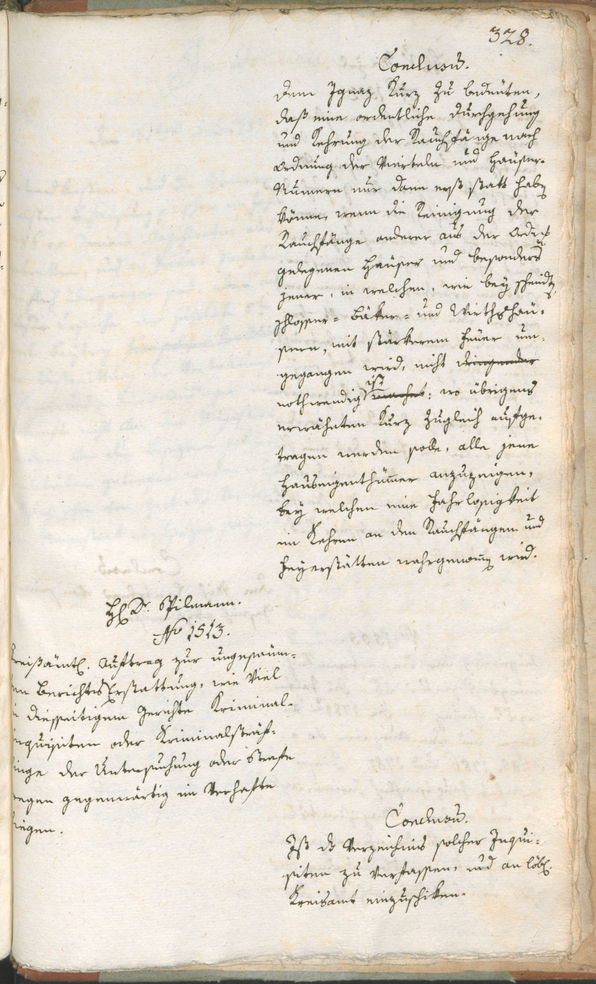 328.
Conclusu͠.
Dem Ignaz Kurz zu bedeuten,
daß eine ordentliche Durchgehung
und Kehrung der Rauchfänge nach
Ordnung der Vierteln und Häuser-
Numern nur dann erst statt haben
könne, wenn die Reinigung der
Rauchfänge anderer aus der Ordn͠g
gelegenen Häuser und besonders
jener, in welchen, wie bey Schmidt,
Schlosser- Bäker- und Wirthshäu-
sern, mit stärkerem Feuer um-
gegangen wird, nicht dringender
nothwendig ist machet; wo übrigens
erwähnten Kurz zugleich aufge-
tragen werden solle, alle jene
Hauseigenthümer anzuzeigen,
bey welchen eine Fahrlosigkeit
im Kehren an den Rauchfängen und
Feyerstätten wahrgenomen wird.
H. Dr. Spilmann.
No 1513.
Kreisämtl. Auftrag zur ungesäum-
en Berichts Erstattung, wie viel
diesseitigem Gerichte Kriminal-
inquisiten oder Kriminalsträf-
linge der Untersuchung oder Strafe
wegen gegenwärtig im Verhafte
liegen.
Conclusu͠.
Ist ds Verzeichnis solcher Inqui-
siten zu verfassen, und an löbl.
Kreisamt einzuschiken.